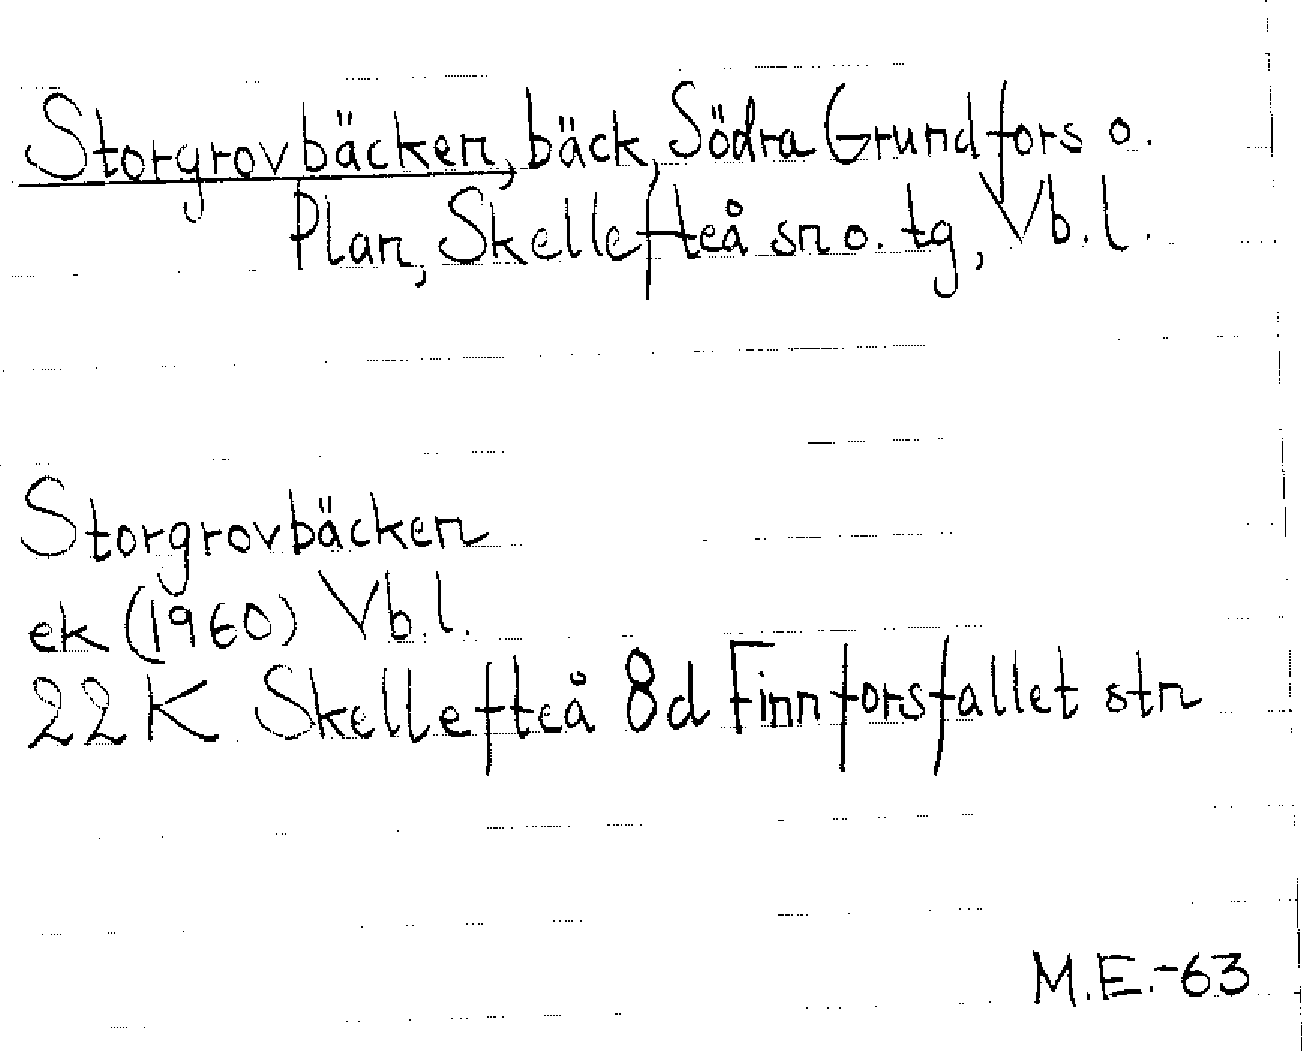 Storgrovbäcken, bäck, Södra Grundfors o.
Plan, Skellefteå sn o. tg, Vb.l.
Storgrovbäcken
ek (1960) Vb.l.
22K Skellefteå 8d Finnforsfallet str
M.E.-63